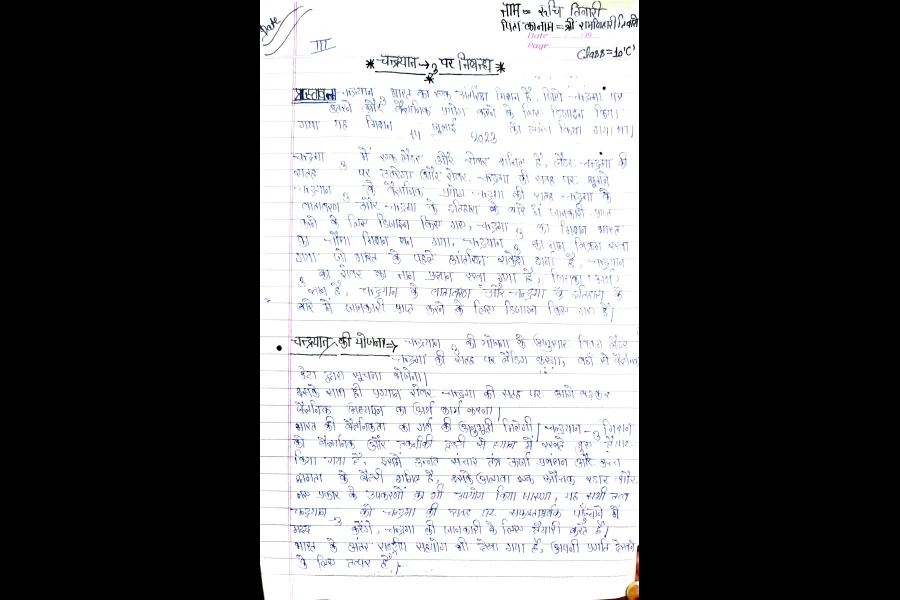 Date
III
नाम = रूचि तिवारी
पिता का नाम = श्री रामबिहारी तिवारी
Date :
Page:
Class = 10 'C'
* चन्द्रयान → 3 पर निबन्ध *
प्रस्तावना चन्द्रयान 3 भारत का एक अंतरिक्ष मिशन है, जिसे चन्द्रमा पर
उतरने और वैज्ञानिक प्रयोग करने के लिए डिजाइन किया
गया यह मिशन 14 जुलाई 2023 को लान्च किया गया था।
चन्द्रमा 3 में एक लैंडर और रोवर शामिल है, लैंडर चन्द्रमा की
सतह पर उतरेगा और रोवर चन्द्रमा की सतह पर घूमेगे
चन्द्रयान 3 के वैज्ञानिक प्रयोग चन्द्रमा की सतह चन्द्रमा के
वातावरण और चन्द्रमा के इतिहास के बारे में जानकारी प्राप्त
करने के लिए डिजाइन किए गए, चन्द्रमा 3 का मिशन भारत
का चौथा मिशन बन गया, चन्द्रयान 3 का नाम विक्रम रखा
गया जो भारत के पहले अंतरिक्ष है, चन्द्रयान
3 का रोवर का नाम प्रज्ञान रखा गया है, जिसका अर्थ
ज्ञान है, चन्द्रयान के वातावरण और चन्द्रमा के इतिहास के
बारे में जानकारी प्राप्त करने के लिए डिजाइन किए गए हैं।
चन्द्रयान की योजना ⇒ चन्द्रयान 3 की योजना के अनुसार विक्रम लैंडर
चन्द्रमा की सतह पर लैंडिंग करेगा, वहाँ से वैज्ञानिक
डेटा द्वारा सूचना भेजेगा।
इसके साथ ही प्रज्ञान रोवर चन्द्रमा की सतह पर आगे बढ़कर
वैज्ञानिक अध्ययन का कार्य करेगा।
भारत की वैज्ञानिकता का गर्व की अनुभूती मिलेगी। चन्द्रयान -3 मिशन
को वैज्ञानिक और तकनीकी दृष्टी से ध्यान में रखते हुए तैयार
किया गया है, इसमें उन्नत संचार तंत्र ऊर्जा प्रबंधन और उच्च
क्षमता के बैटरी शामिल है, इसके अलावा रडार और
नए प्रकार के उपकरणों का भी उपयोग किया जाएगा, यह सभी तत्व
चन्द्रयान -3 को चन्द्रमा की सतह पर सफलतापूर्वक पहुँचाने में
मदद करेंगे, चन्द्रमा की जानकारी के लिए तैयारी करते हैं।
भारत के अंतर राष्ट्रीय सहयोग भी देखा गया है, अपनी प्रगति देखने
के लिए तत्पर है।